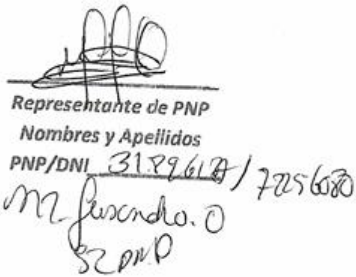 Representante de PNP
Nombres y Apellidos
PNP/DNI 31896127 / 72256080
S2 PNP